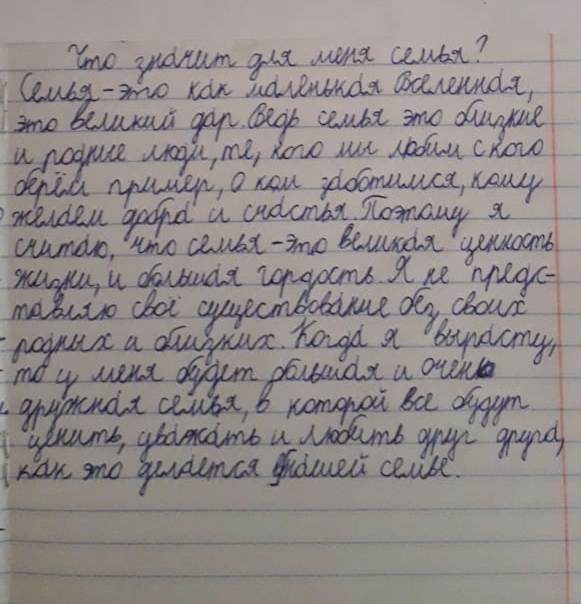 Что значит для меня семья?
Семья-это как маленькая Вселенная,
это великий дар. Ведь семья это близкие
и родные люди, те, кого мы любим с кого
берём пример, о ком заботимся, кому
желаем добра и счастья. Поэтому я
считаю, что семья-это великая ценность
жизни, и большая гордость. Я не предс-
тавляю своё существование без своих
родных и близких. Когда я вырасту,
то у меня будет большая и очень
дружная семья, в которой все будут
ценить, уважать и любить друг друга,
как это делается в нашей семье.